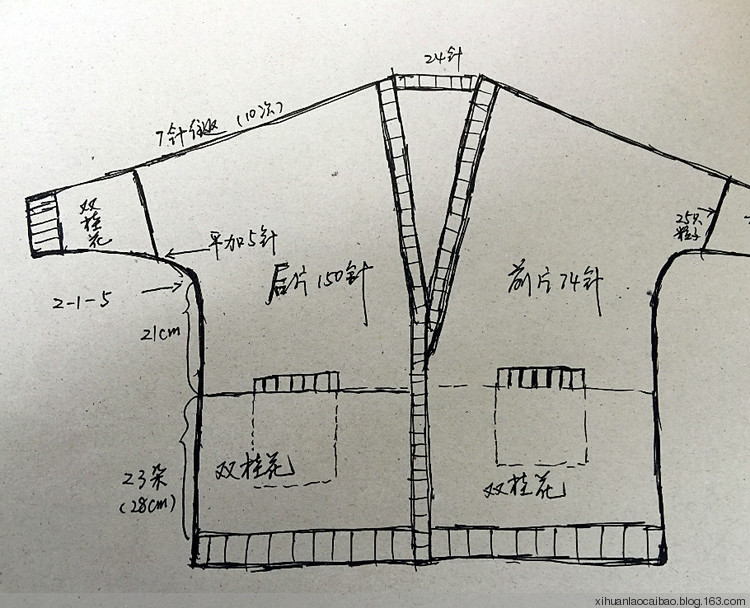 24针
7针往返(10次)
双
桂
花
25只
粒子
平加5针
后片150针
前片74针
2-1-5
21cm
23朵
(28cm)
双桂花
双桂花
xihuanlaocaibao.blog.163.com